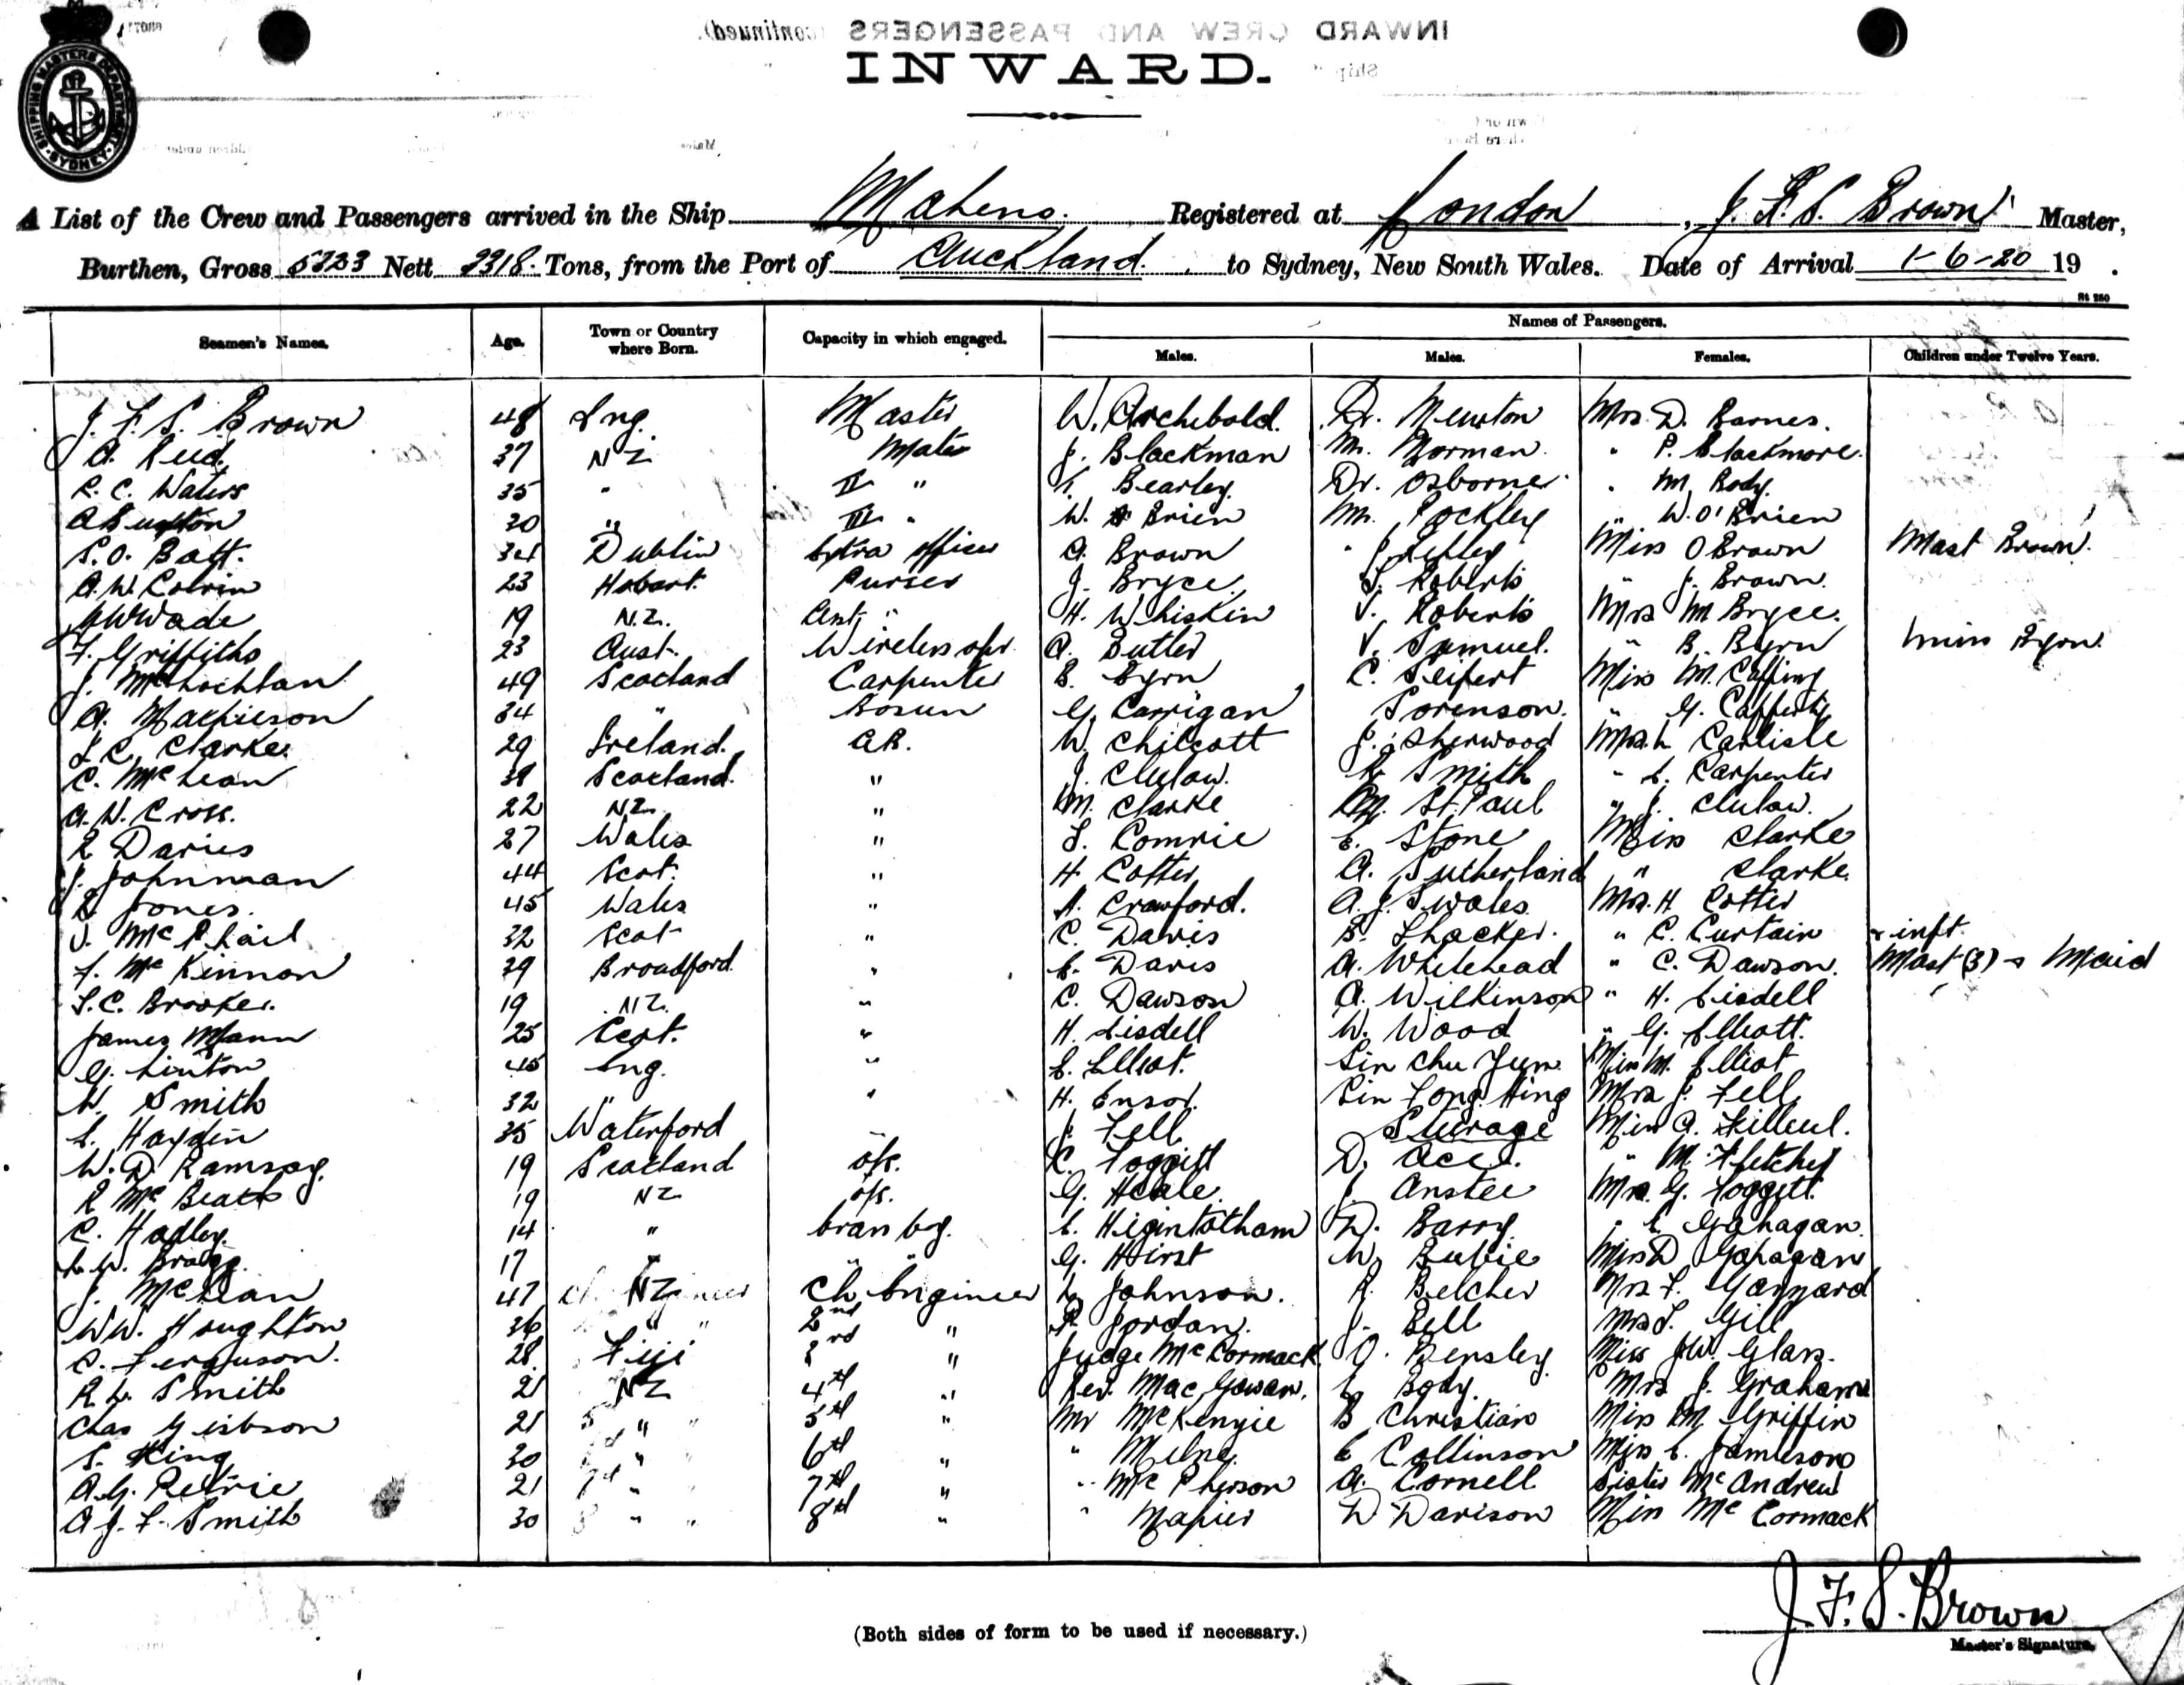 INWARD CREW AND PASSENGERS (continued).
INWARD.
SHIPPING MASTERS DEPARTMENT SYDNEY
A List of the Crew and Passengers arrived in the Ship Maheno. Registered at London, J. F. S. Brown Master,
Burthen, Gross 5323 Nett 2318 Tons, from the Port of Auckland. to Sydney, New South Wales. Date of Arrival 1-6-20 19 .
St 250
Seamen's Names. Age. Town or Country where Born. Capacity in which engaged. Names of Passengers.
Males. Males. Females. Children under Twelve Years.
J. F. S. Brown 48 Eng. Master W. Archebold. Dr. Newton Mrs. D. Barnes.
A. Reid 37 NZ Mate J. Blackman Mr. Norman " P. Blackmore.
R. C. Waters 35 " II " Bearley Dr. Osborne " M. Body.
30 " III " W. Brien Mr. Pockley " W. O'Brien
S. O. Batt. 34 Dublin Extra officer A. Brown " Miss O Brown Mast Brown.
A. W. Colvin 23 Hobart. Purser J. Bryce. Roberts " J. Brown.
Wade 19 N.Z. Asst. " H. Whiskin V. Roberts Mrs M Bryce.
F. Griffiths 23 Aust. Wireless opr. A. Butler V. Samuel. " B. Byrn Miss Byrn.
J. McLachlan 49 Scotland Carpenter B. Byrn C. Seifert Miss M.
A. 34 " Bosun G. Carrigan Sorenson. " G. Cafferty
L. C. Clarke. 29 Ireland. A.B. W. Chilcott J. Sherwood Mrs. L Carlisle
C. McLean 38 Scotland. " J. Clulow. Smith " E. Carpenter
A. W. Cross. 22 NZ " M. Clarke M. St. Paul " J. Clulow.
R Davies 27 Wales " L. Comrie E. Stone Miss Clarke
J. Johnman 44 Scot. " H Cotter A. Sutherland " Clarke.
Jones. 45 Wales " A. Crawford. A. J. Swales Mrs. H Cotter
J. McPhail 32 Scot " C. Davis B. Thacker. " C. Curtain & inft.
F. McKinnon 39 Broadford " E. Davis A. Whitehead " C. Dawson. Mast (3) & Maid
S. C. Brooker. 19 NZ. " C. Dawson A. Wilkinson " H. Lisdell
James Mann 25 Scot. " H. Lisdell W. Wood " G. Elliott.
G. Linton 45 Eng. " E. Elliot. Sin Chu Jum Miss M. Elliot
W. Smith 32 " " H. Ensor. Sin Fong Hing Mrs J. Fell
E. Hayden 35 Waterford " J. Fell Steerage Miss A. Filleul.
W. D. Ramsay. 19 Scotland O/S. C. Foggitt D. Ace. " M. Fletcher
R McBeath 19 NZ O/S. G. Heale. J. Anstee Mrs. G. Foggitt.
C. Hadley. 14 " Bran boy. E. Higintotham D. Barry. " E. Gahagan.
L. W. Bragg. 17 " " G. Hirst W. Miss D Gahagan
J. McLean 47 NZ Ch Engineer L. Johnson. R. Belcher Mrs F.
W. W. Houghton 36 " 2nd " P. Jordan. J. Bell Mrs S. Gill
C. Ferguson. 28 Fiji 3rd " Judge McCormack O. Bensley Miss J. W. Glass.
R. L. Smith 21 NZ 4th " Rev. MacGowan. Body. Mrs J. Graham
Chas Gibson 21 " 5th " Mr McKenzie B Christian Miss M. Griffin
S. King 30 " 6th " " Milne. E Collinson Miss E. Jamieson
A. G. Petrie 21 " 7th " " McPherson A. Cornell Sister McAndrew
A. J. F. Smith 30 " 8th " " Napier D Davison Miss McCormack
J. F. S. Brown
(Both sides of form to be used if necessary.)
Master's Signature.